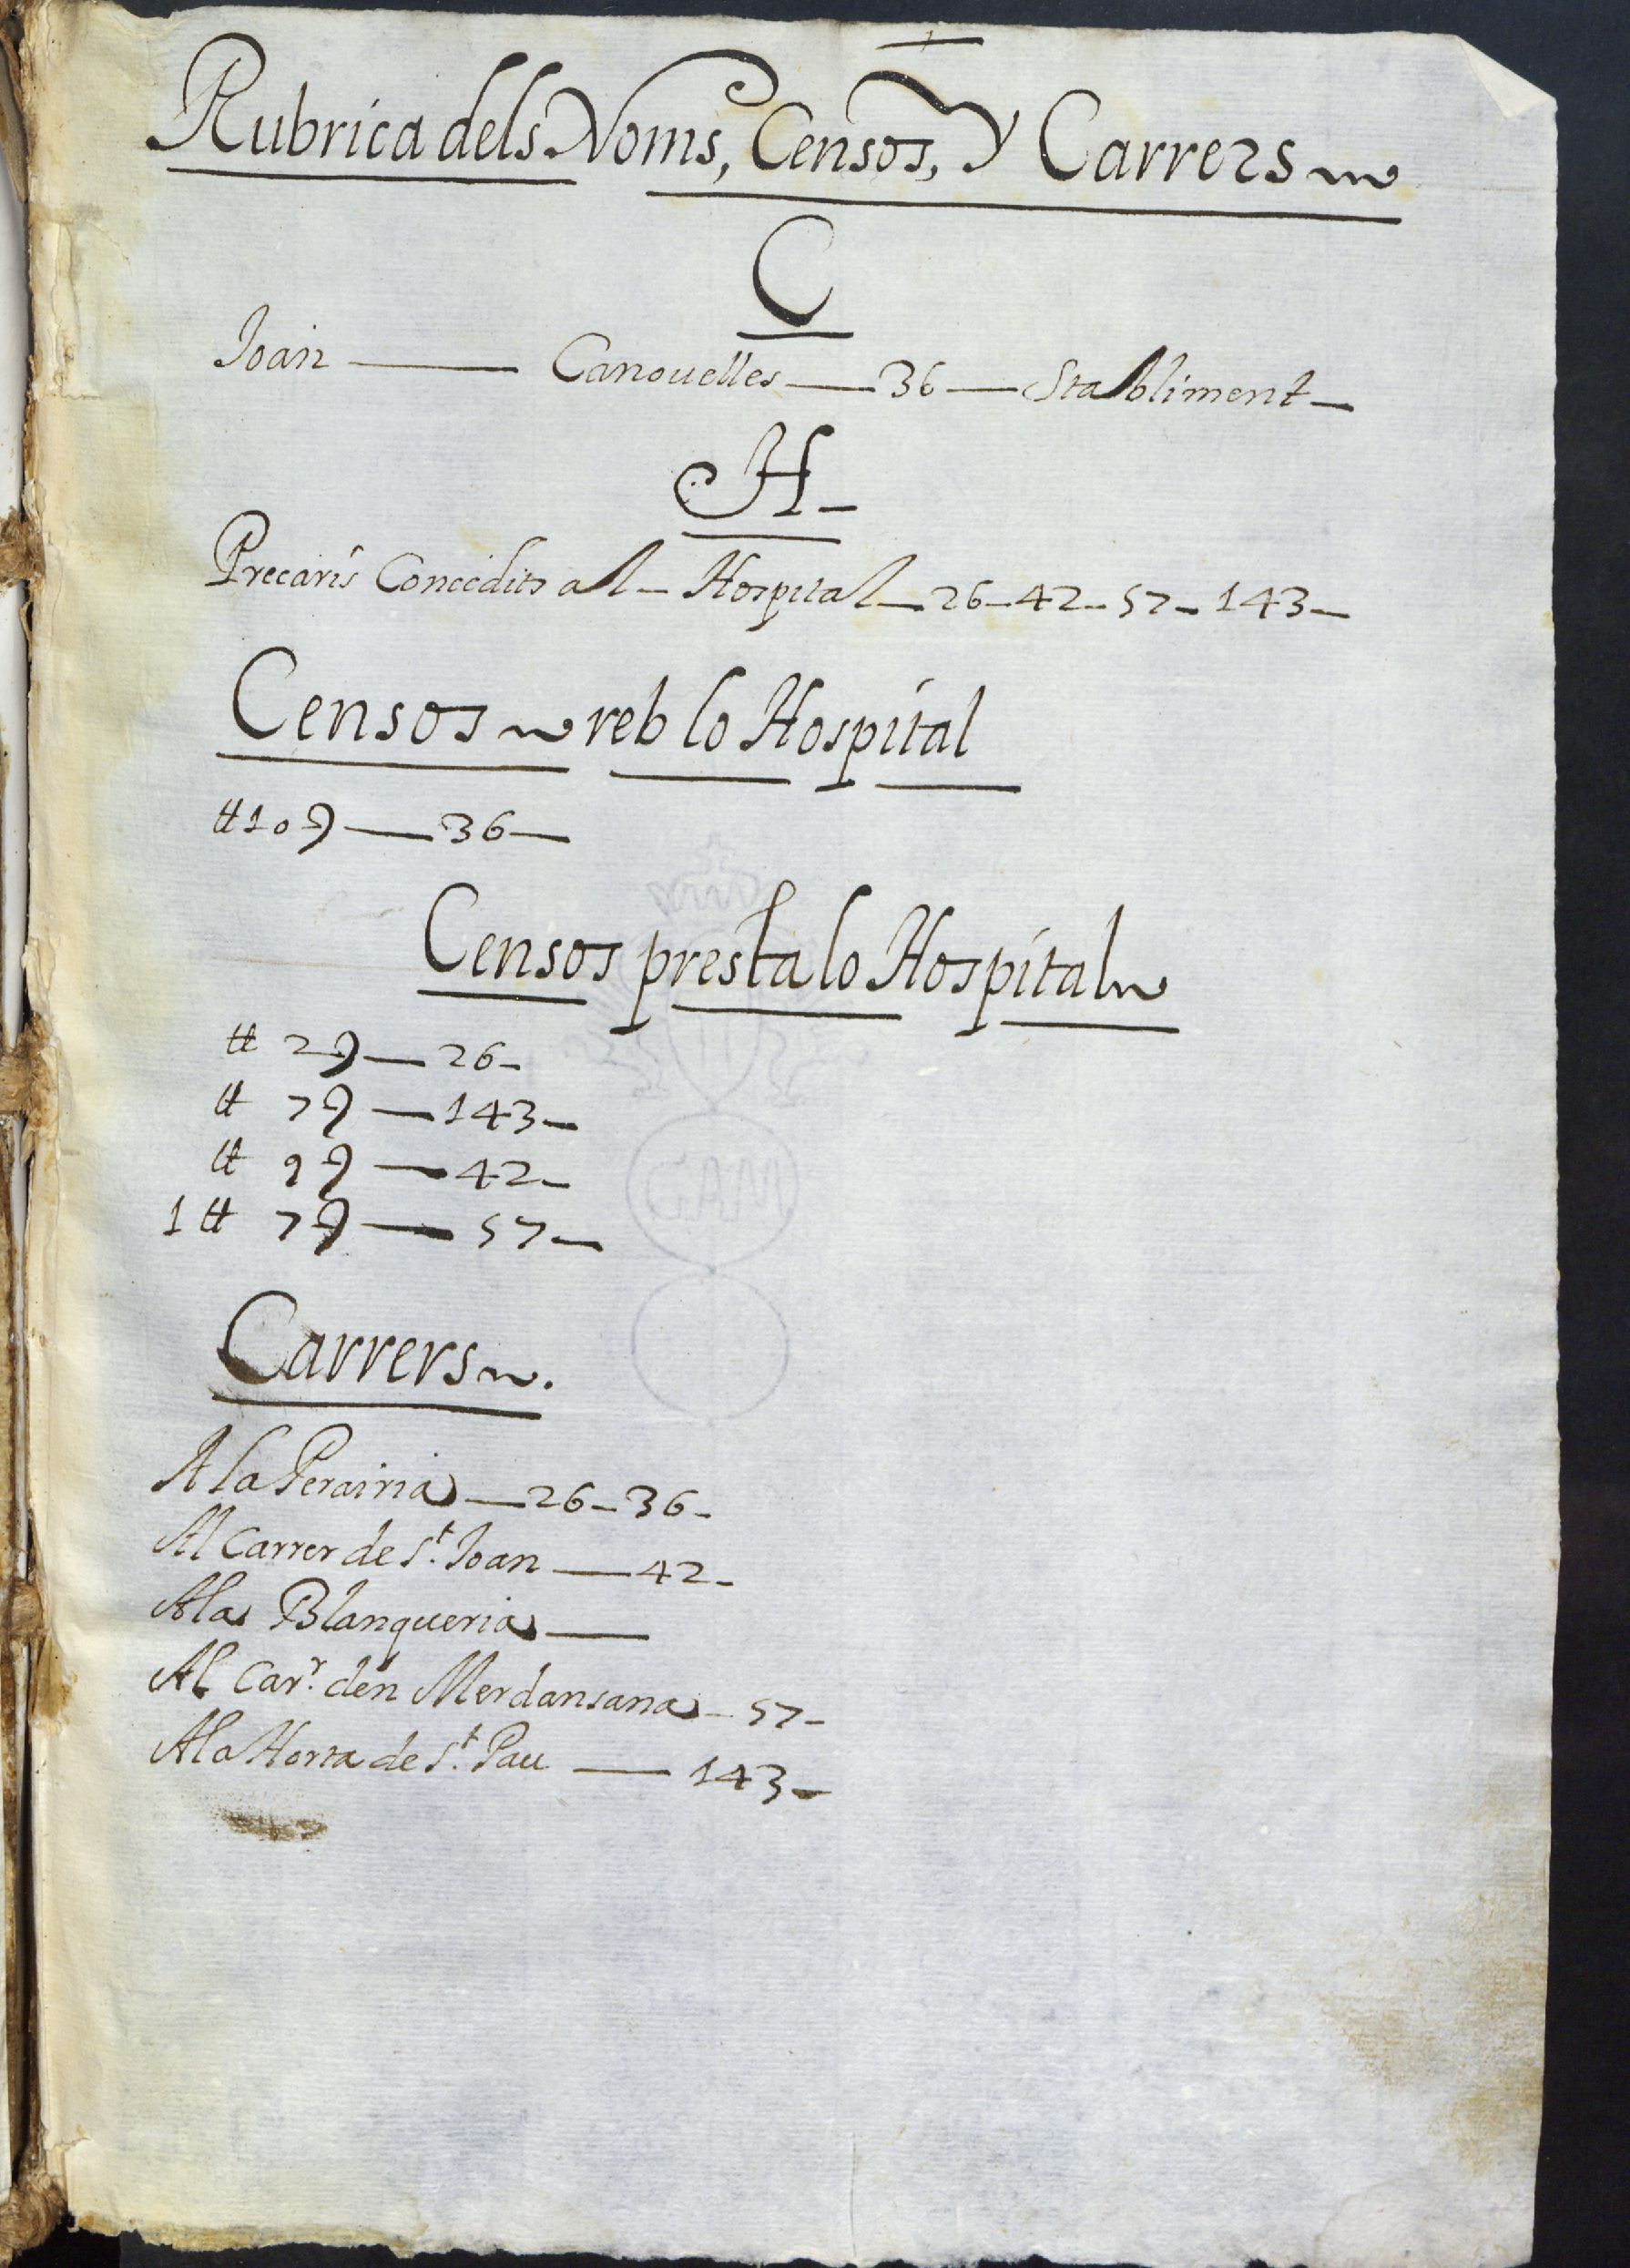 Rubrica dels Noms, Censos, Y Carrers
C
Joan — Canouelles — 36 — Stabliment —
H —
Precaris Concedits al — Hospital — 26 — 42 — 57 — 143 —
Censos reb lo Hospital
₶ 10 ꝯ — 36 —
Censos presta lo Hospital
₶ 2 ꝯ — 26 —
₶ 7 ꝯ — 143 —
₶ 9 ꝯ — 42 —
1 ₶ 7 ꝯ — 57 —
Carrers.
A la Perairia — 26 — 36 —
Al Carrer de St. Joan — 42 —
A la Blanqueria —
Al Carr. den Merdansana — 57 —
A la Horta de St. Pau — 143 —
GAM